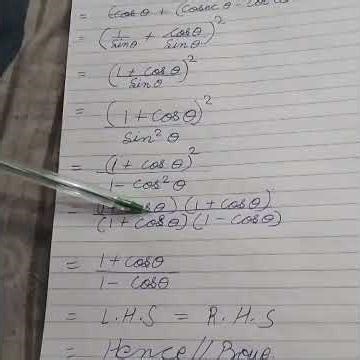 = (1/sinθ + cosθ/sinθ)²
= (1 + cosθ/sinθ)²
= (1 + cosθ)²/sin²θ
= (1 + cosθ)²/1 - cos²θ
= (1 + cosθ)(1 + cosθ)/(1 + cosθ)(1 - cosθ)
= 1 + cosθ/1 - cosθ
= L.H.S = R.H.S
= Hence//